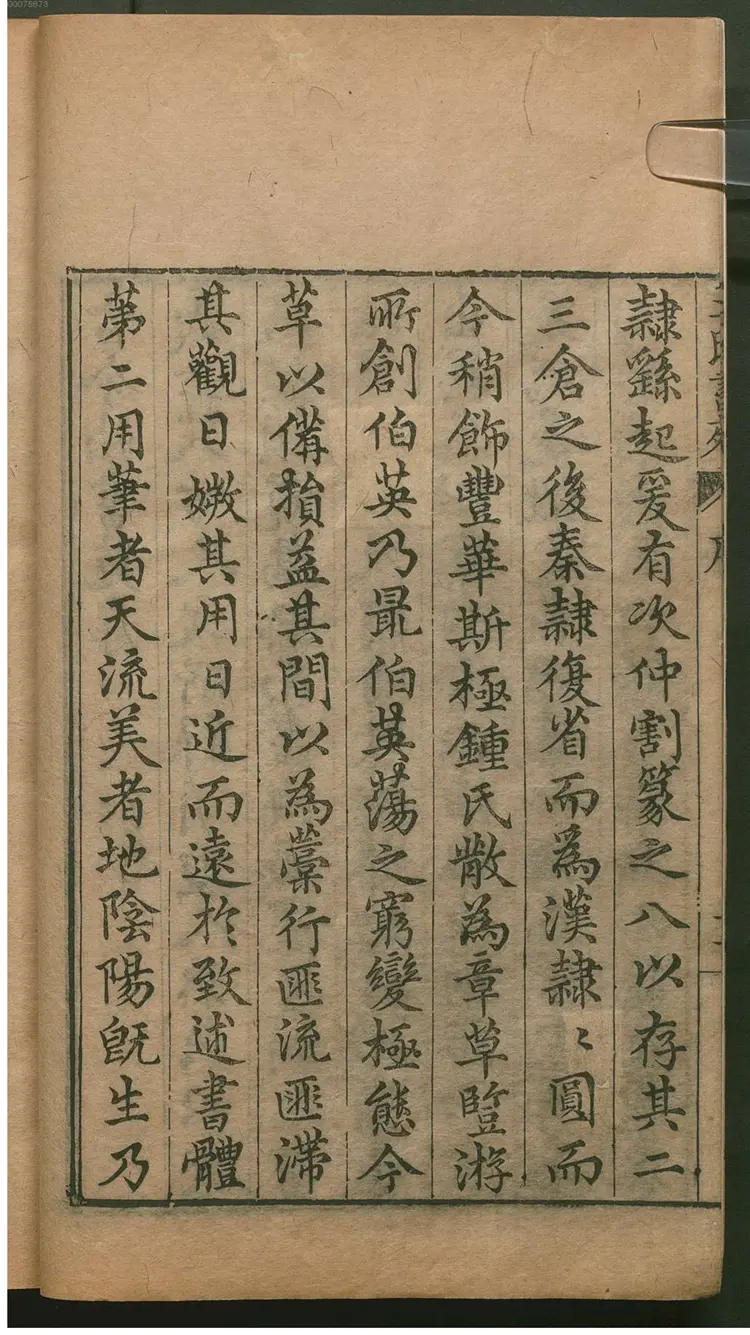 隸繇起爰有次仲割篆之八以存其二
三倉之後秦隸復省而為漢隸〻圓而
今稍飾豐華斯極鍾氏散為章草暨游
所創伯英乃最伯英蕩之窮變極態今
草以備損益其間以為藁行匪流匪滯
其觀日媺其用日近而遠於致述書體
第二用筆者天流美者地陰陽旣生乃
00075873